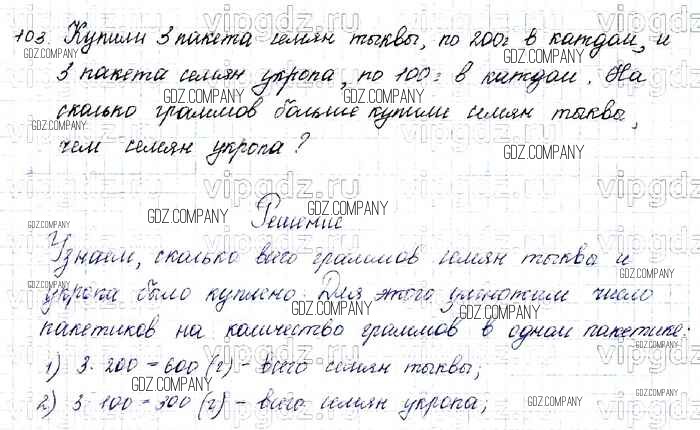 103. Купили 3 пакета семян тыквы, по 200г в каждом, и
3 пакета семян укропа, по 100г в каждом. На
сколько граммов больше купили семян тыквы,
чем семян укропа?
Решение
Узнаем, сколько всего граммов семян тыквы и
укропа было куплено. Для этого умножим число
пакетиков на количество граммов в одном пакетике:
1) 3·200=600 (г) - всего семян тыквы;
2) 3·100=300 (г) - всего семян укропа;